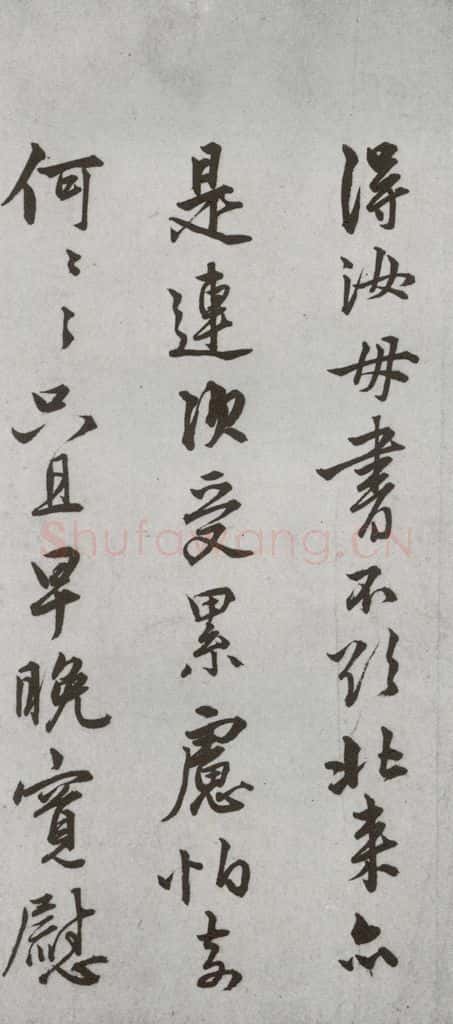 得汝母書不欲北来亦
是連次受累慮怕奈
何〻〻只且早晚寬慰
Shufawang.CN